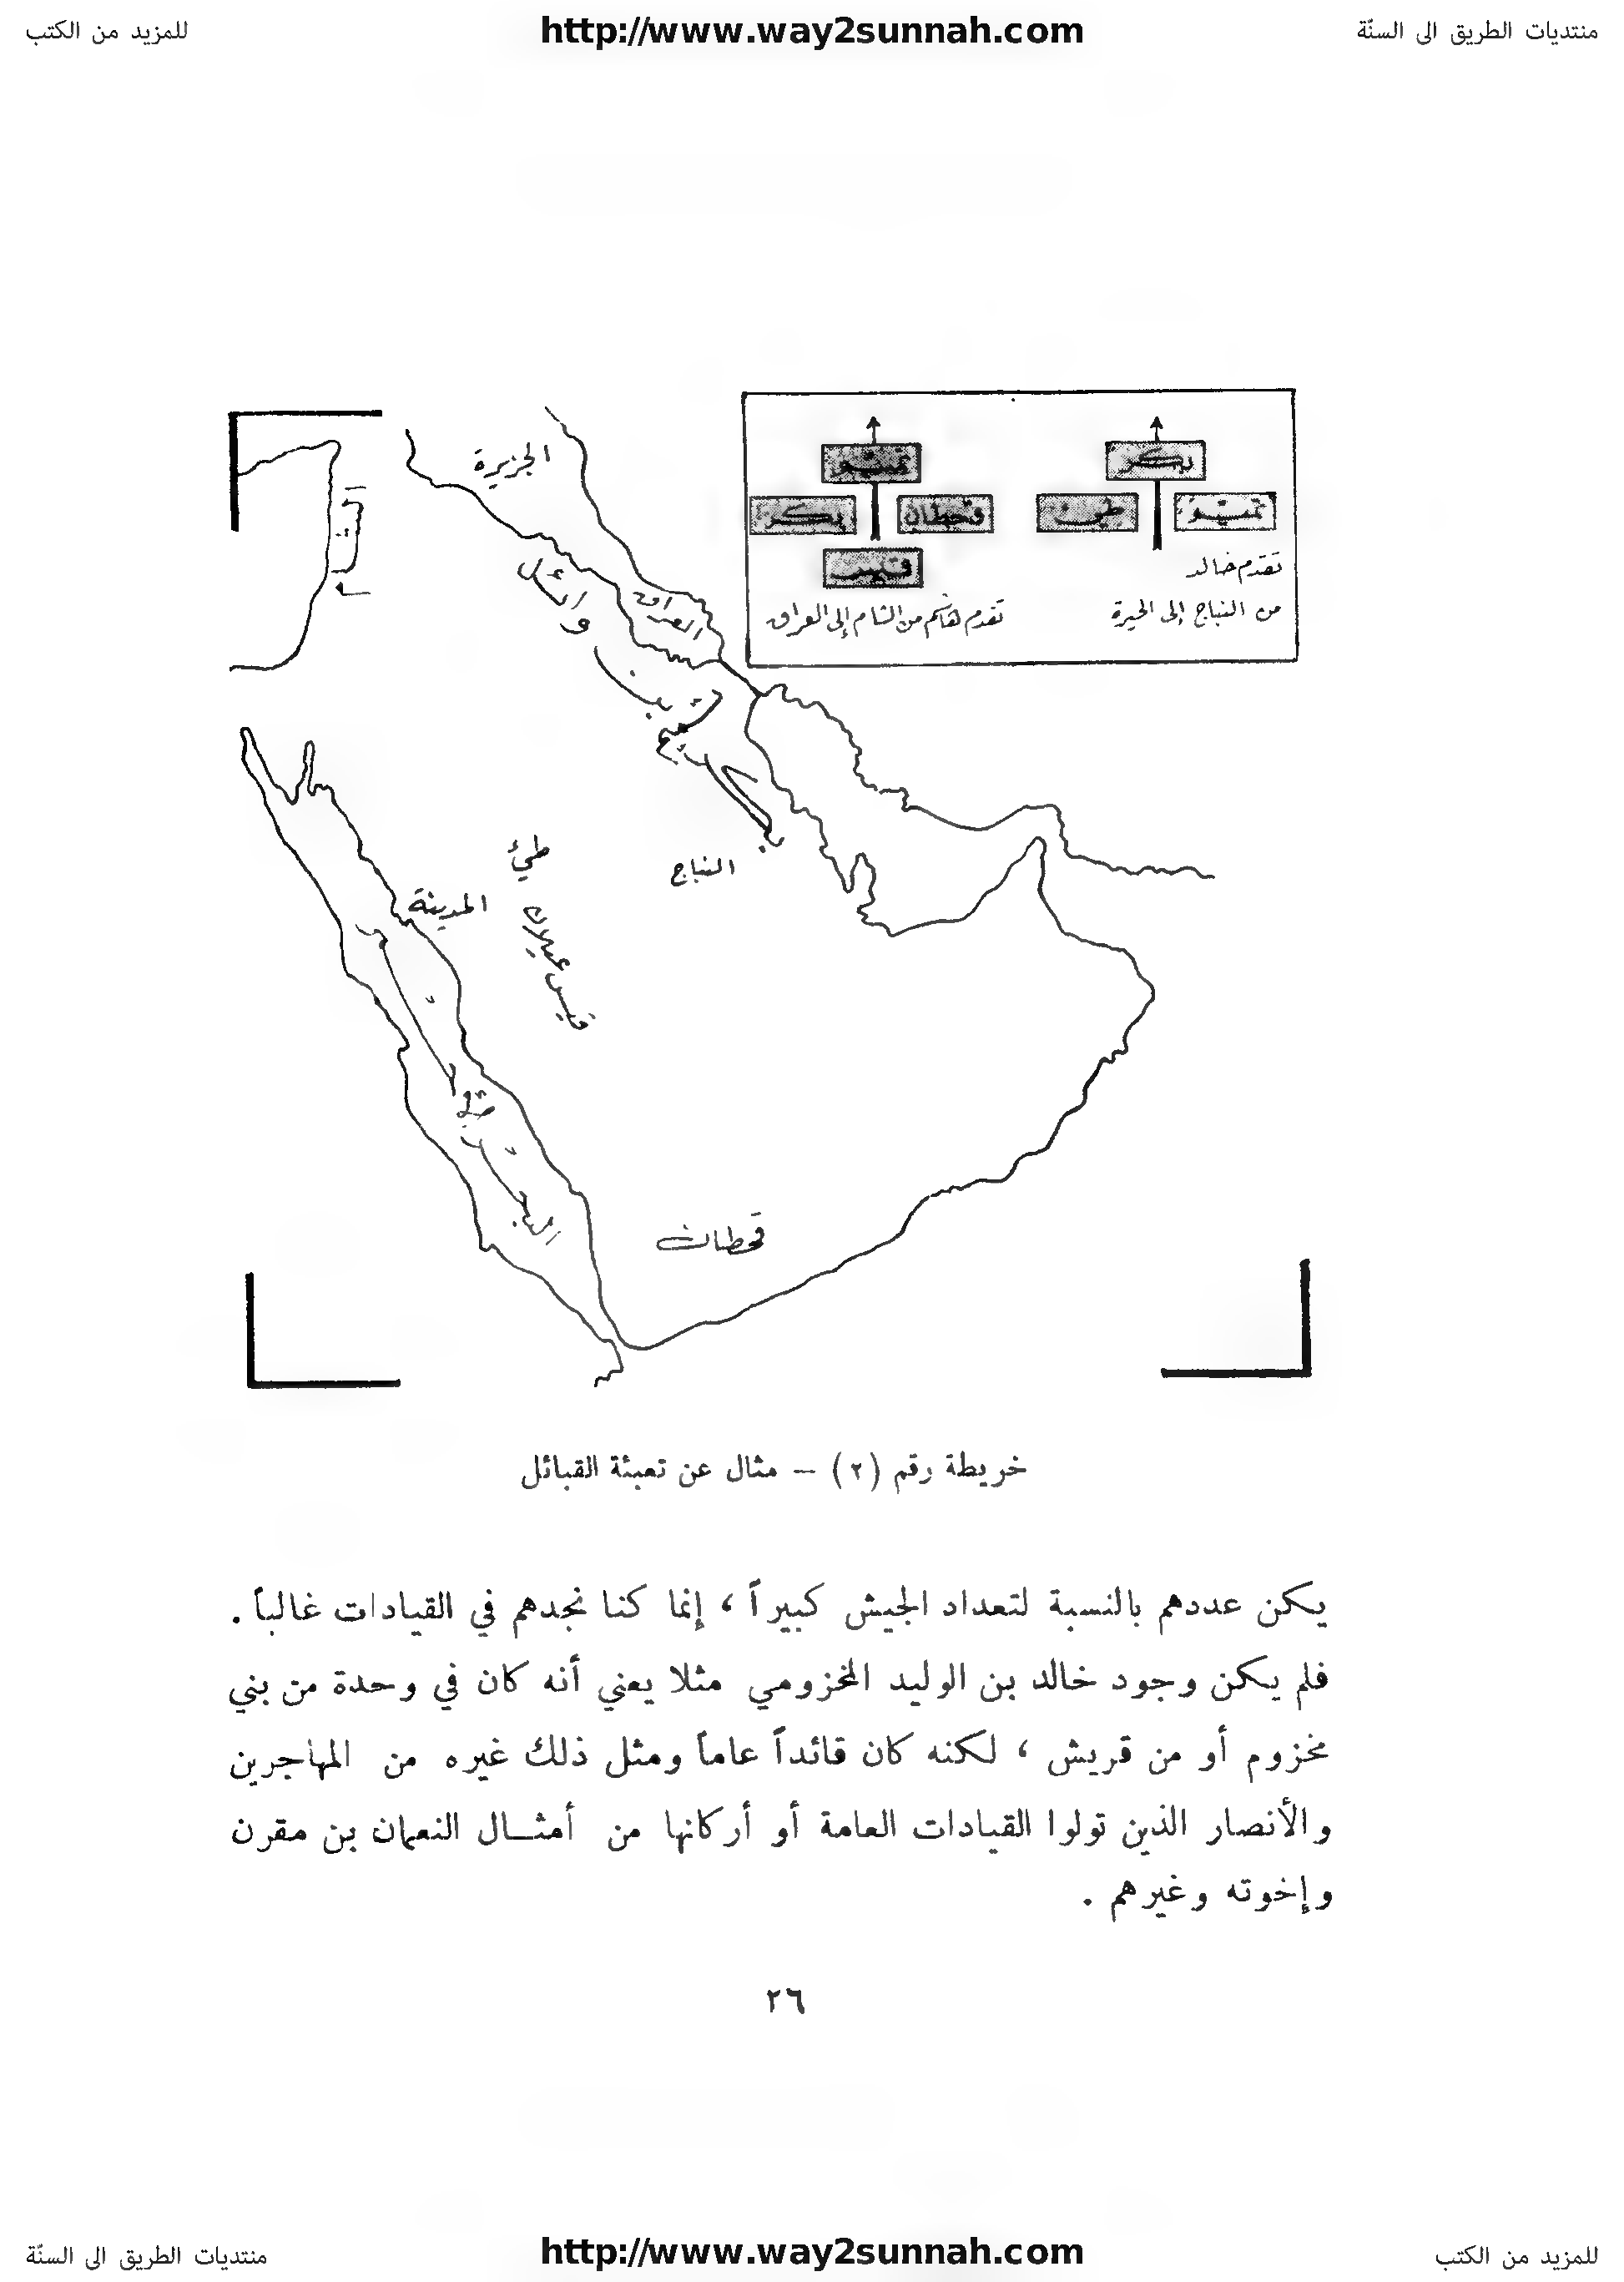 منتديات الطريق الى السنّة
http://www.way2sunnah.com
للمزيد من الكتب
بكر
تميم
طيئ
تقدم خالد
من النباج إلى الحيرة
تميم
قحطان
بكر
قيس
تقدم هاشم من الشام إلى العراق
الجزيرة
الشام
العراق
وائل
بن
بكر
النباج
طيئ
المدينة
قيس عيلان
البحر
قحطان
خريطة رقم (٢) – مثال عن تعبئة القبائل
يكن عددهم بالنسبة لتعداد الجيش كبيراً ، إنما كنا نجدهم في القيادات غالباً .
فلم يكن وجود خالد بن الوليد المخزومي مثلا يعني أنه كان في وحدة من بني
مخزوم أو من قريش ، لكنه كان قائداً عاماً ومثل ذلك غيره من المهاجرين
والأنصار الذين تولوا القيادات العامة أو أركانها من أمثـال النعمان بن مقرن
وإخوته وغيرهم .
٢٦
للمزيد من الكتب
http://www.way2sunnah.com
منتديات الطريق الى السنّة